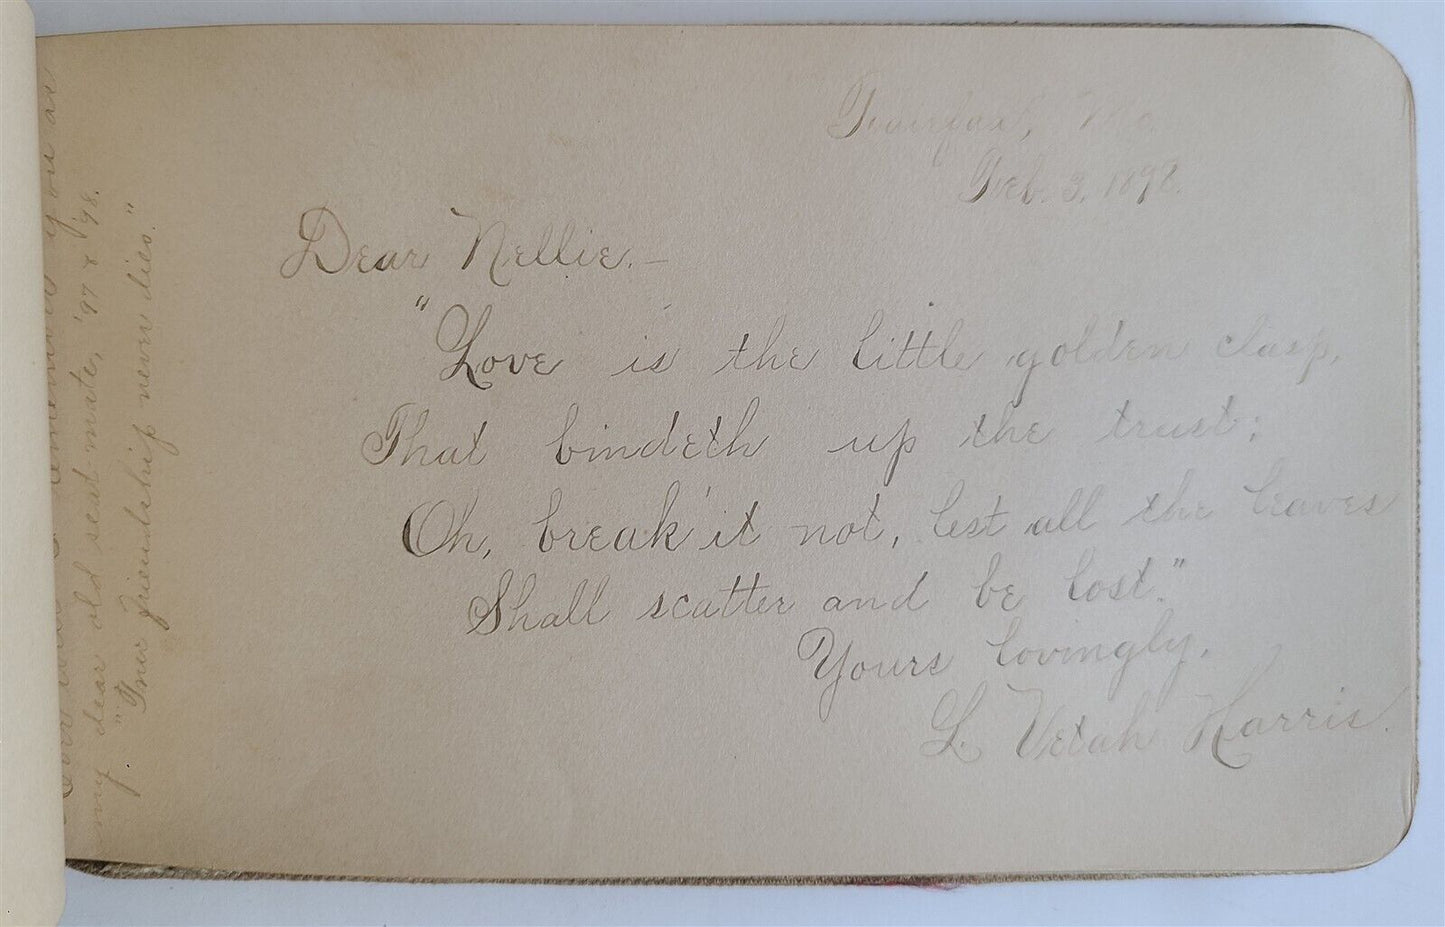 Fairfax, Mo.
Feb. 3, 1898.
Dear Nellie.—
"Love is the little golden clasp,
That bindeth up the trust;
Oh, break it not, lest all the leaves
Shall scatter and be lost."
Yours lovingly,
L. Vetah Harris.
remembered you as
my dear old seat-mate, '97 & '98.
"True friendship never dies."